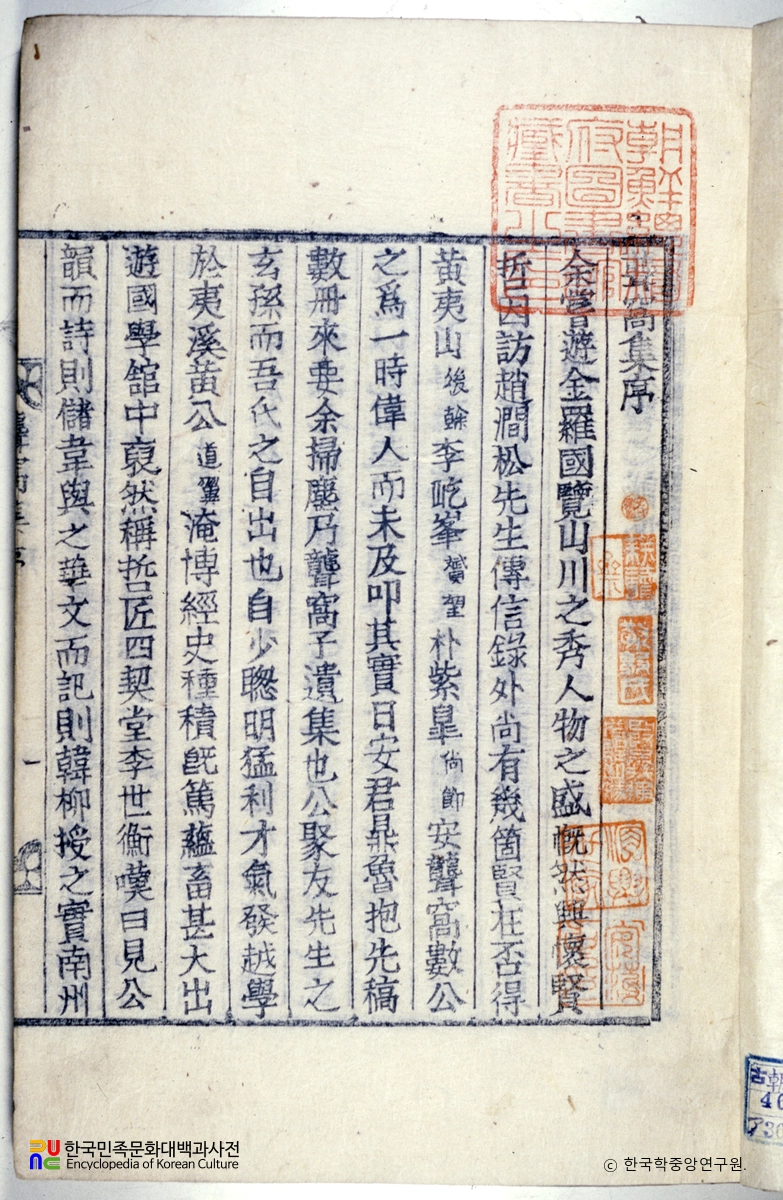 朝鮮總督府圖書館藏書之印
聾窩集序
余嘗遊金羅國覽山川之秀人物之盛慨然興懷賢
哲因訪趙澗松先生傳信錄外尚有幾箇賢在否得
黃夷山後榦李屹峯贇望朴紫臯尙節安聾窩數公
之爲一時偉人而未及叩其實日安君鼎魯抱先稿
數冊來要余掃塵乃聾窩子遺集也公聚友先生之
玄孫而吾氏之自出也自少聰明猛利才氣發越學
於夷溪黃公道翼淹博經史種積旣篤蘊畜甚大出
遊國學舘中裒然稱哲匠四契堂李世衡嘆曰見公
韻而詩則儲韋與之華文而記則韓柳授之實南州
聾窩集序
一
古朝
46
한국민족문화대백과사전
Encyclopedia of Korean Culture
ⓒ 한국학중앙연구원.